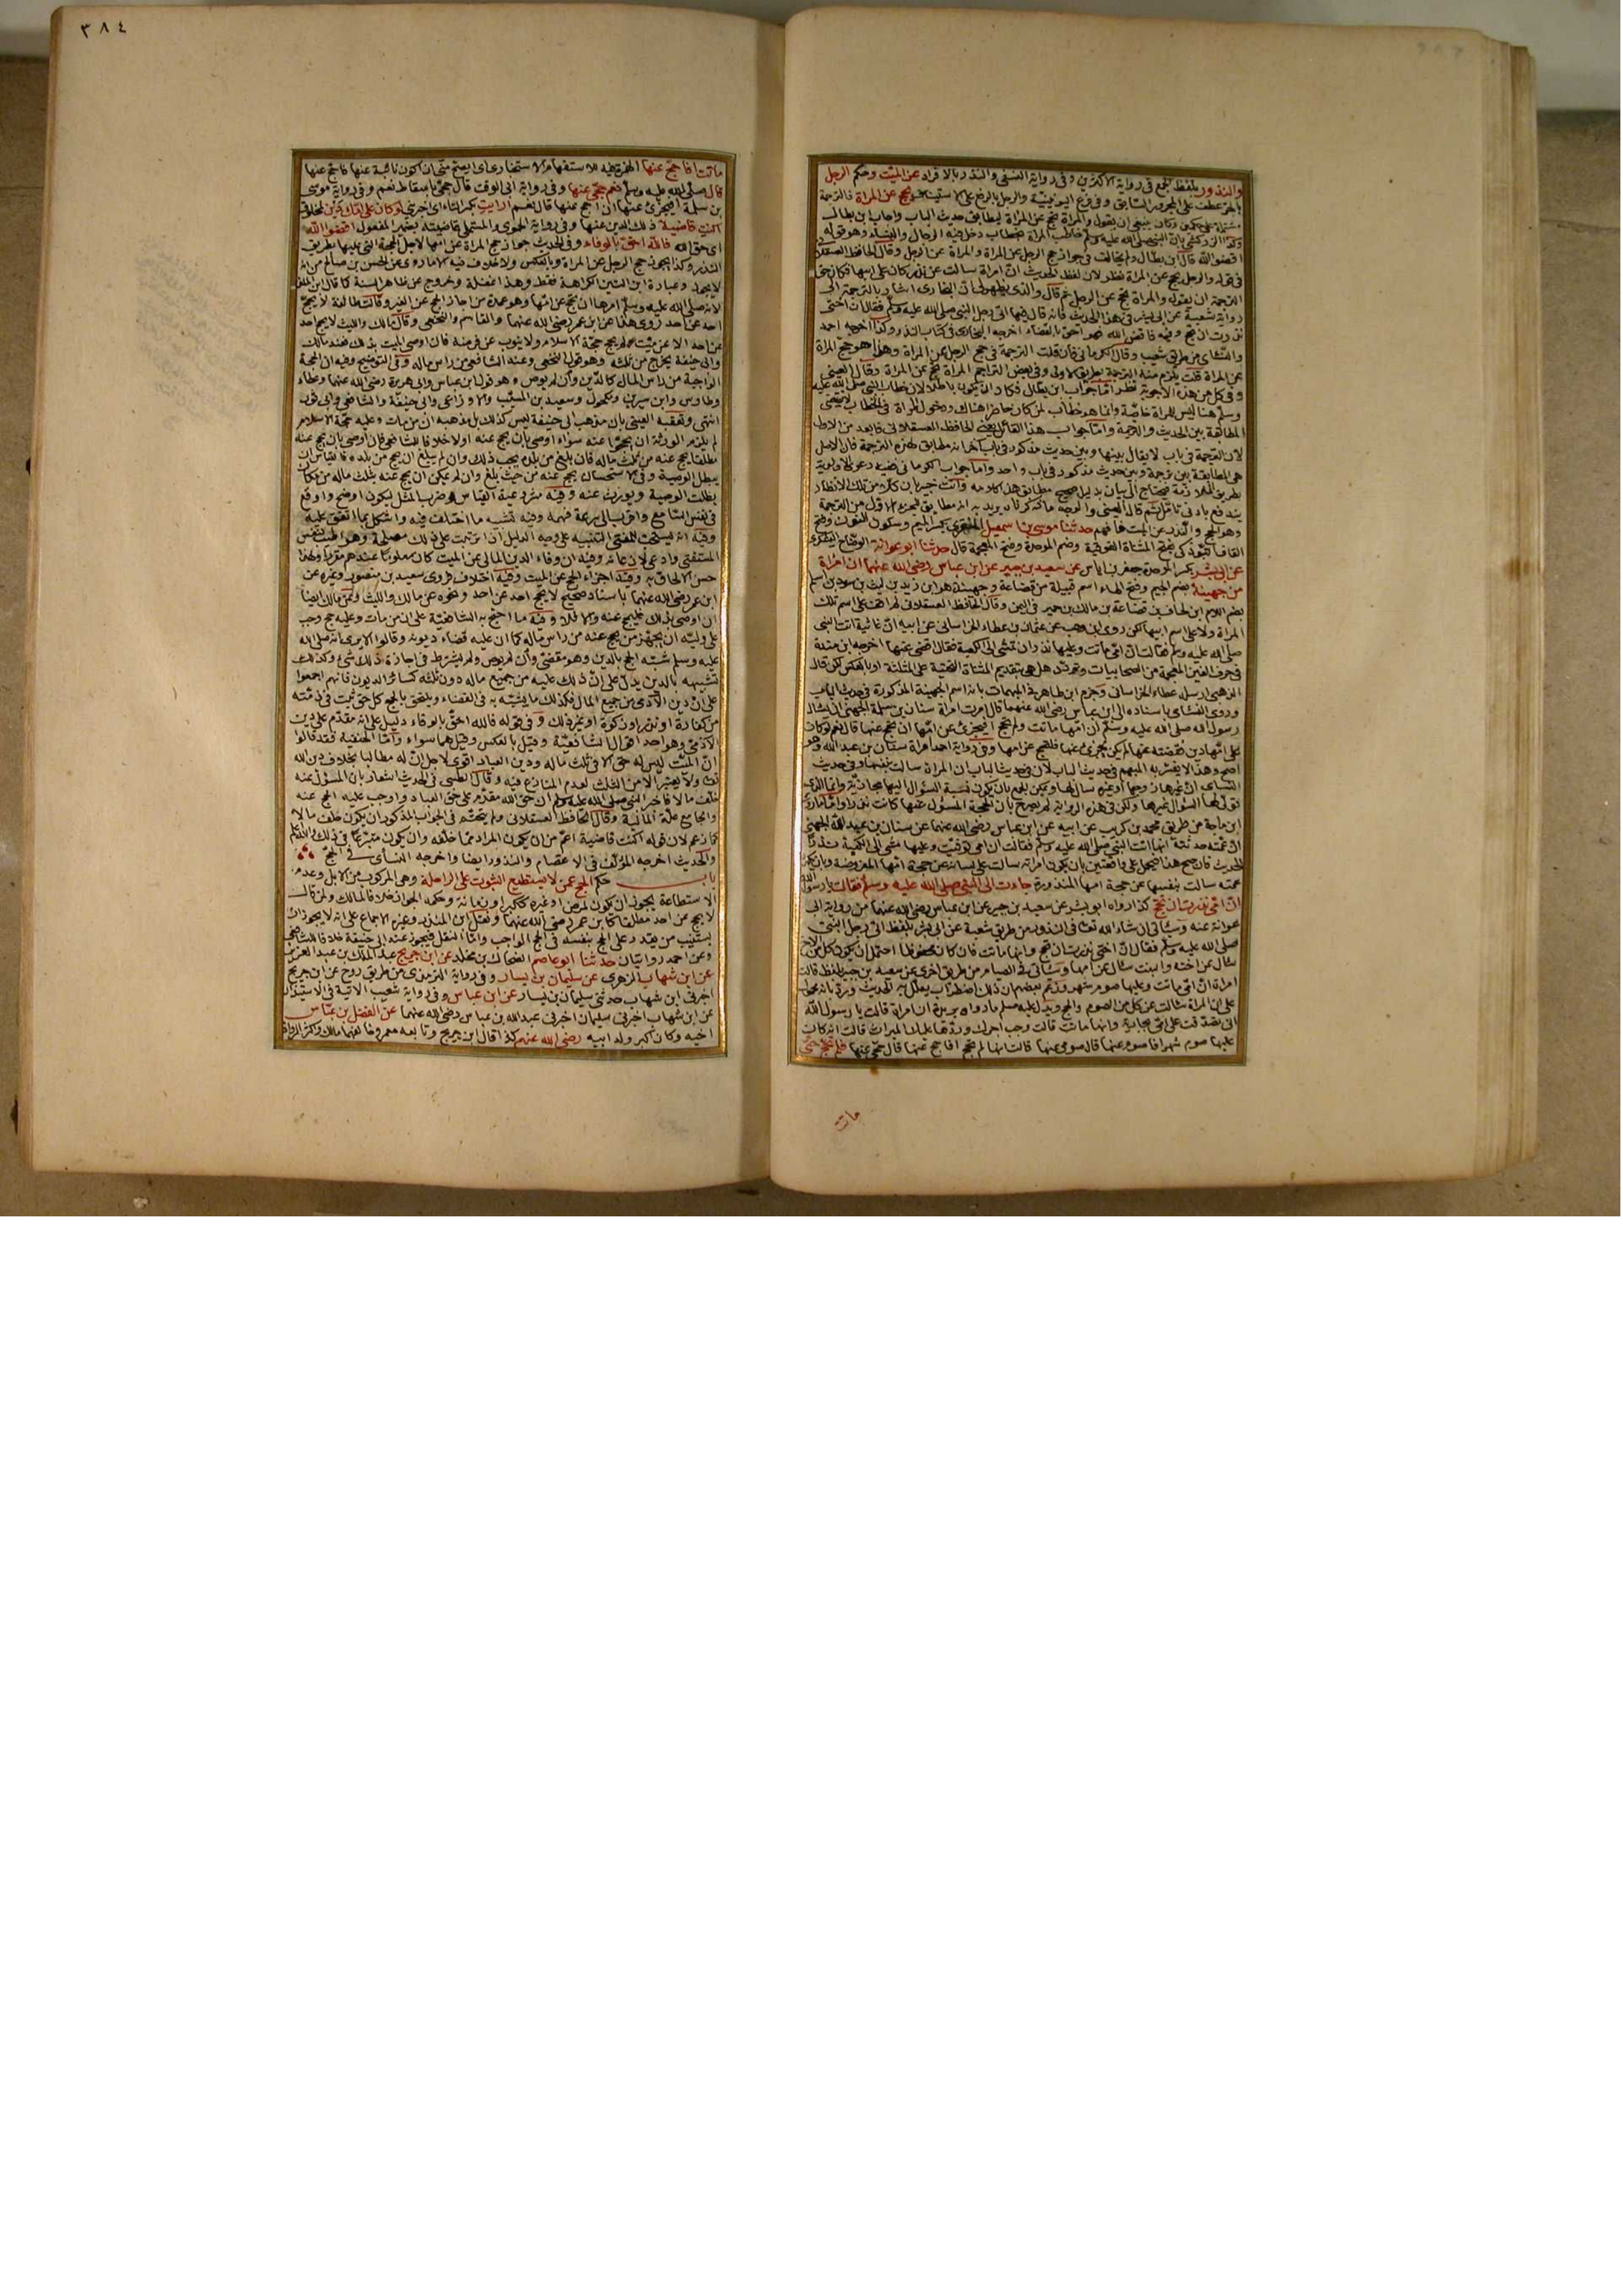 والنذور بلفظ الجمع فى رواية الاكثرين وفى رواية النسفى والنذر بالافراد عن الميت وحكم الرجل
يحج عن المراة فالترجمة
ينبغى ان يقول والمراة تحج عن المراة ليطابق حديث الباب واجاب ابن بطال
بان النبى صلى الله عليه وسلم خاطب المراة بخطاب دخل فيه الرجال والنساء وهو قوله
اقضوا الله قال ابن بطال ولم يخالف فى جواز حج الرجل عن المراة والمراة عن الرجل وقال الحافظ العسقلانى
فى قوله والرجل يحج عن المراة نظر لان لفظ الحديث ان امراة سالت عن نذر كان على ابيها فكان حق
الترجمة ان يقول والمراة تحج عن الرجل ثم قال والذى يظهر لى ان البخارى اشار بالترجمة الى
رواية شعبة عن ابى بشر فى هذا الحديث فانه قال فيها اتى رجل النبى صلى الله عليه وسلم فقال ان اختى
نذرت ان تحج وفيه فاقض الله فهو احق بالقضاء اخرجه البخارى فى كتاب النذور وكذا اخرجه احمد
والنسائى من طريق شعبة وقال الكرمانى فان قلت الترجمة فى حج الرجل عن المراة وهذا هو حج المراة
عن المراة قلت يلزم منه الترجمة بطريق الاولى وفى بعض التراجم المراة تحج عن المراة وقال العينى
وفى كل من هذه الاجوبة نظر اما جواب ابن بطال
وسلم هنا ليس للمراة خاصة وانما هو خطاب لمن كان حاضرا هناك ودخول المراة فى الخطاب لا يقتضى
المطابقة بين الحديث والترجمة واما جواب هذا القائل يعنى الحافظ العسقلانى فابعد من الاول
لان الترجمة فى باب لا يقال بينها وبين حديث مذكور فى باب اخر انه مطابق لهذه الترجمة فان الاصل
هى المطابقة بين ترجمة وبين حديث مذكور فى باب واحد واما جواب الكرمانى
وهو الحج والنذر عن الميت فافهم حدثنا موسى بن اسمعيل المنقرى بكسر الميم وسكون النون وفتح
القاف التبوذكى بفتح المثناة الفوقية وضم الموحدة وفتح المعجمة قال حدثنا ابو عوانة الوضاح اليشكرى
عن ابى بشر بكسر الموحدة جعفر بن اياس عن سعيد بن جبير عن ابن عباس رضى الله عنهما ان امراة
من جهينة بضم الجيم وفتح الهاء اسم قبيلة من قضاعة وجهينة هو ابن زيد بن ليث بن سود بن اسلم
بضم اللام ابن الحاف بن قضاعة بن مالك بن حمير فى اليمن وقال الحافظ العسقلانى لم اقف على اسم تلك
المراة ولا على اسم ابيها لكن روى ابن وهب عن عثمان بن عطاء الخراسانى عن ابيه ان غاثية اتت النبى
صلى الله عليه وسلم فقالت ان امى ماتت وعليها نذر ان تمشى الى الكعبة فقال اقضى عنها اخرجه ابن مندة
فى حرف الغين المعجمة من الصحابيات وتردد هل هى بتقديم المثناة التحتية على المثلثة او بالعكس لكن قال
الذهبى ارسله عطاء الخراسانى وجزم ابن طاهر فى المبهمات بانه اسم الجهينة المذكورة فى حديث الباب
وروى النسائى باسناده الى ابن عباس رضى الله عنهما قال امرت امراة سنان بن سلمة الجهنى ان يسال
رسول الله صلى الله عليه وسلم ان امها ماتت ولم تحج افيجزئ عن امها ان تحج عنها قال نعم لو كان
على امها دين فقضته عنها الم يكن يجزئ عنها فلتحج عن امها وفى رواية احمد امراة سنان بن عبد الله وهو
اصح وهذا لا يفسر به المبهم فى حديث الباب لان فى حديث الباب ان المراة سالت بنفسها وفى حديث
النسائى ان غيرها
ابن ماجة من طريق محمد بن كريب عن ابيه عن ابن عباس رضى الله عنهما عن سنان بن عبد الله الجهنى
ان عمته حدثته انها اتت النبى صلى الله عليه وسلم فقالت ان امى توفيت وعليها مشى الى الكعبة نذرا
عمته سالت بنفسها عن حجة امها المنذورة جاءت الى النبى صلى الله عليه وسلم فقالت يا رسول الله
ان امى نذرت ان تحج كذا رواه ابو بشر عن سعيد بن جبير عن ابن عباس رضى الله عنهما من رواية ابى
عوانة عنه وسياتى ان شاء الله تعالى فى النذور من طريق شعبة عن ابى بشر بلفظ اتى رجل النبى
صلى الله عليه وسلم فقال ان اختى نذرت ان تحج وانها ماتت فان كان محفوظا احتمل ان يكون كل من الاخ
سال عن اخته والبنت سالت عن امها وسياتى فى الصيام من طريق اخرى عن سعيد بن جبير بلفظ قالت
امراة ان امى ماتت وعليها صوم شهر وزعم بعضهم ان ذلك اضطراب يعلل به الحديث ورد بانه محمول
على ان المراة سالت عن كل من الصوم والحج ويدل عليه مسلم ما رواه بريدة ان امراة قالت يا رسول الله
انى تصدقت على امى بجارية وانها ماتت قالت وجب اجرك وردها عليك الميراث قالت انه كان
عليها صوم شهر افاصوم عنها قال صومى عنها قالت انها لم تحج افاحج عنها قال حجى عنها فلم تحج حتى
مات
٣٨٤
ماتت افاحج عنها الهمزة فيه للاستفهام الاستخبارى اى ايصح منى ان اكون نائبة عنها فاحج عنها
قال صلى الله عليه وسلم نعم حجى عنها وفى رواية ابى الوقت قال حجى باسقاط نعم وفى رواية موسى
بن سلمة افيجزئ عنها ان احج عنها قال نعم ارايت بكسر التاء اى اخبرنى لو كان على امك دين لمخلوق
اكنت قاضية ذلك الدين عنها وفى رواية الحموى والمستملى قاضيته بضمير المفعول اقضوا الله
اى حق الله فالله احق بالوفاء وفى الحديث جواز حج المراة عن امها لاجل الحجة التى عليها بطريق
النذر وكذا يجوز حج الرجل عن المراة وبالعكس ولا خلاف فيه الا ما روى عن الحسن بن صالح من انه
لا يجوز وعبارة ابن التين الكراهة فقط وهذا غفلة وخروج عن ظاهر السنة كما قال ابن المنذر
لانه صلى الله عليه وسلم امرها ان تحج عن امها وهو عمدة من اجاز الحج عن الغير وقالت طائفة لا يحج
احد عن احد روى هذا عن ابن عمر رضى الله عنهما والقاسم والنخعى وقال مالك والليث لا يحج احد
عن احد الا عن ميت لم يحج حجة الاسلام ولا ينوب عن فرضه فان اوصى الميت بذلك فعند مالك
وابى حنيفة يخرج من ثلثه وهو قول النخعى وعند الشافعى من راس ماله وفى التوضيح وفيه ان الحجة
الواجبة من راس المال كالدين وان لم يوص وهو قول ابن عباس وابى هريرة رضى الله عنهما وعطاء
وطاوس وابن سيرين ومكحول وسعيد بن المسيب والاوزاعى وابى حنيفة والشافعى وابى ثور
انتهى وتعقبه العينى بان مذهب ابى حنيفة ليس كذلك بل مذهبه ان من مات وعليه حجة الاسلام
لم يلزم الورثة ان يحجوا عنه سواء اوصى بان يحج عنه اولا خلافا للشافعى فان اوصى بان يحج عنه
مطلقا يحج عنه من ثلث ماله فان بلغ من بلده يجب ذلك وان لم يبلغ ان يحج من بلده فالقياس ان
يبطل الوصية وفى الاستحسان يحج عنه من حيث بلغ وان لم يمكن ان يحج عنه بثلث ماله من مكان
بطلت الوصية ويورث عنه وفيه مشروعية القياس وضرب المثل ليكون اوضح واوقع
فى نفس السامع واقرب الى سرعة فهمه وفيه تشبيه ما اختلف فيه واشكل بما اتفق عليه
وفيه انه يستحب للمفتى التنبيه على وجه الدليل اذا ترتبت على ذلك مصلحة وهو اطيب لنفس
المستفتى وادعى لاذعانه وفيه ان وفاء الدين المالى عن الميت كان معلوما عندهم مقررا ولهذا
حسن الالحاق به وفيه اجزاء الحج عن الميت وفيه اختلاف فروى سعيد بن منصور وغيره عن
ابن عمر رضى الله عنهما باسناد صحيح لا يحج احد عن احد ونحوه عن مالك والليث وعن مالك ايضا
ان اوصى بذلك فليحج عنه والا فلا وفيه ما احتج به الشافعية على ان من مات وعليه حج وجب
على وليه ان يجهز من يحج عنه من راس ماله كما ان عليه قضاء ديونه وقالوا الا يرى انه صلى الله
عليه وسلم شبه الحج بالدين وهو مقضى وان لم يوص ولم يشترط فى اجازة ذلك شئ وكذلك
تشبيهه بالدين يدل على ان ذلك عليه من جميع ماله دون ثلثه كسائر الديون فانهم اجمعوا
على ان دين الآدمى من جميع المال فكذلك ما يشبه به فى القضاء ويلتحق بالحج كل حق ثبت فى ذمته
من كفارة او نذر او زكوة او غير ذلك وفى قوله فالله احق بالوفاء دليل على انه مقدم على دين
الآدمى وهو احد اقوال الشافعية وقيل بالعكس وقيل هما سواء واما الحنفية فقد قالوا
ان الميت ليس له حق الا فى ثلث ماله ودين العباد اقوى لاجل ان له مطالبا بخلاف دين الله
تعالى ولا يعتبر الا من الثلث لعدم المنازع فيه وقال الطيبى فى الحديث اشعار بان المسؤل عنه
خلف مالا فاخبر النبى صلى الله عليه وسلم ان حق الله مقدم على حق العباد واوجب عليه الحج عنه
والجامع علة المالية وقال الحافظ العسقلانى ولم يتحتم فى الجواب المذكور ان يكون خلف مالا
كما زعم لان قوله اكنت قاضية اعم من ان يكون المراد مما خلفه وان يكون متبرعا فى ذلك والله اعلم
والحديث اخرجه المؤلف فى الاعتصام والنذور ايضا واخرجه النسائى فى الحج
باب حكم الحج عمن لا يستطيع الثبوت على الراحلة وهى المركوب من الابل وعدم
الاستطاعة يجوز ان يكون لمرض او غيره ككبر او زمانة وحكمه الجواز خلافا لمالك ولمن قال
لا يحج عن احد مطلقا كابن عمر رضى الله عنهما ونقل ابن المنذر وغيره الاجماع على انه لا يجوز ان
يستنيب من يقدر على الحج بنفسه فى الحج الواجب واما النفل فيجوز عند ابى حنيفة خلافا للشافعى
وعن احمد روايتان حدثنا ابو عاصم الضحاك بن مخلد عن ابن جريج عبد الملك بن عبد العزيز
عن ابن شهاب الزهرى عن سليمان بن يسار وفى رواية الترمذى من طريق روح عن ابن جريج
اخبرنى ابن شهاب حدثنى سليمان بن يسار عن ابن عباس وفى رواية شعيب الآتية فى الاستيذان
عن ابن شهاب اخبرنى سليمان اخبرنى عبد الله بن عباس رضى الله عنهما عن الفضل بن عباس
اخيه وكان اكبر ولد ابيه رضى الله عنهم كذا قال ابن جريج وتابعه معمر وخالفهما مالك واكثر الرواة